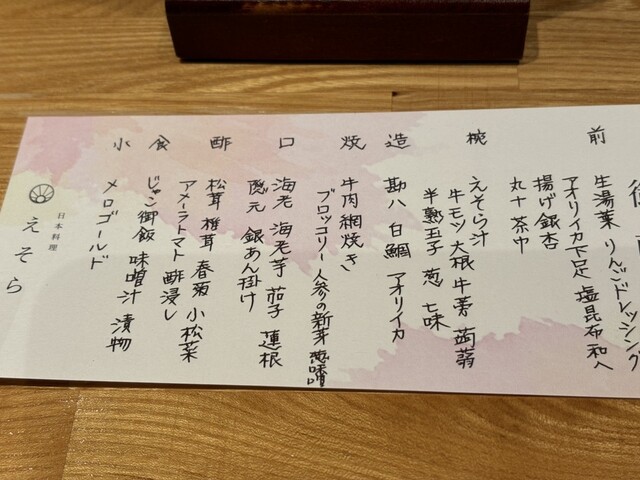 前
生湯葉 りんごドレッシング
アオリイカ下足 塩昆布和へ
揚げ銀杏
丸十 茶巾
椀
えそら汁
牛モツ 大根 牛蒡 蒟蒻
半熟玉子 葱 七味
造
勘八 白鯛 アオリイカ
焼
牛肉網焼き
ブロッコリー 人参の新芽 葱味噌
口
海老 海老芋 茄子 蓮根
隠元 銀あん掛け
酢
松茸 椎茸 春菊 小松菜
アメーラトマト 酢浸し
食
じゃこ御飯 味噌汁 漬物
水
メロゴールド
日本料理
えそら